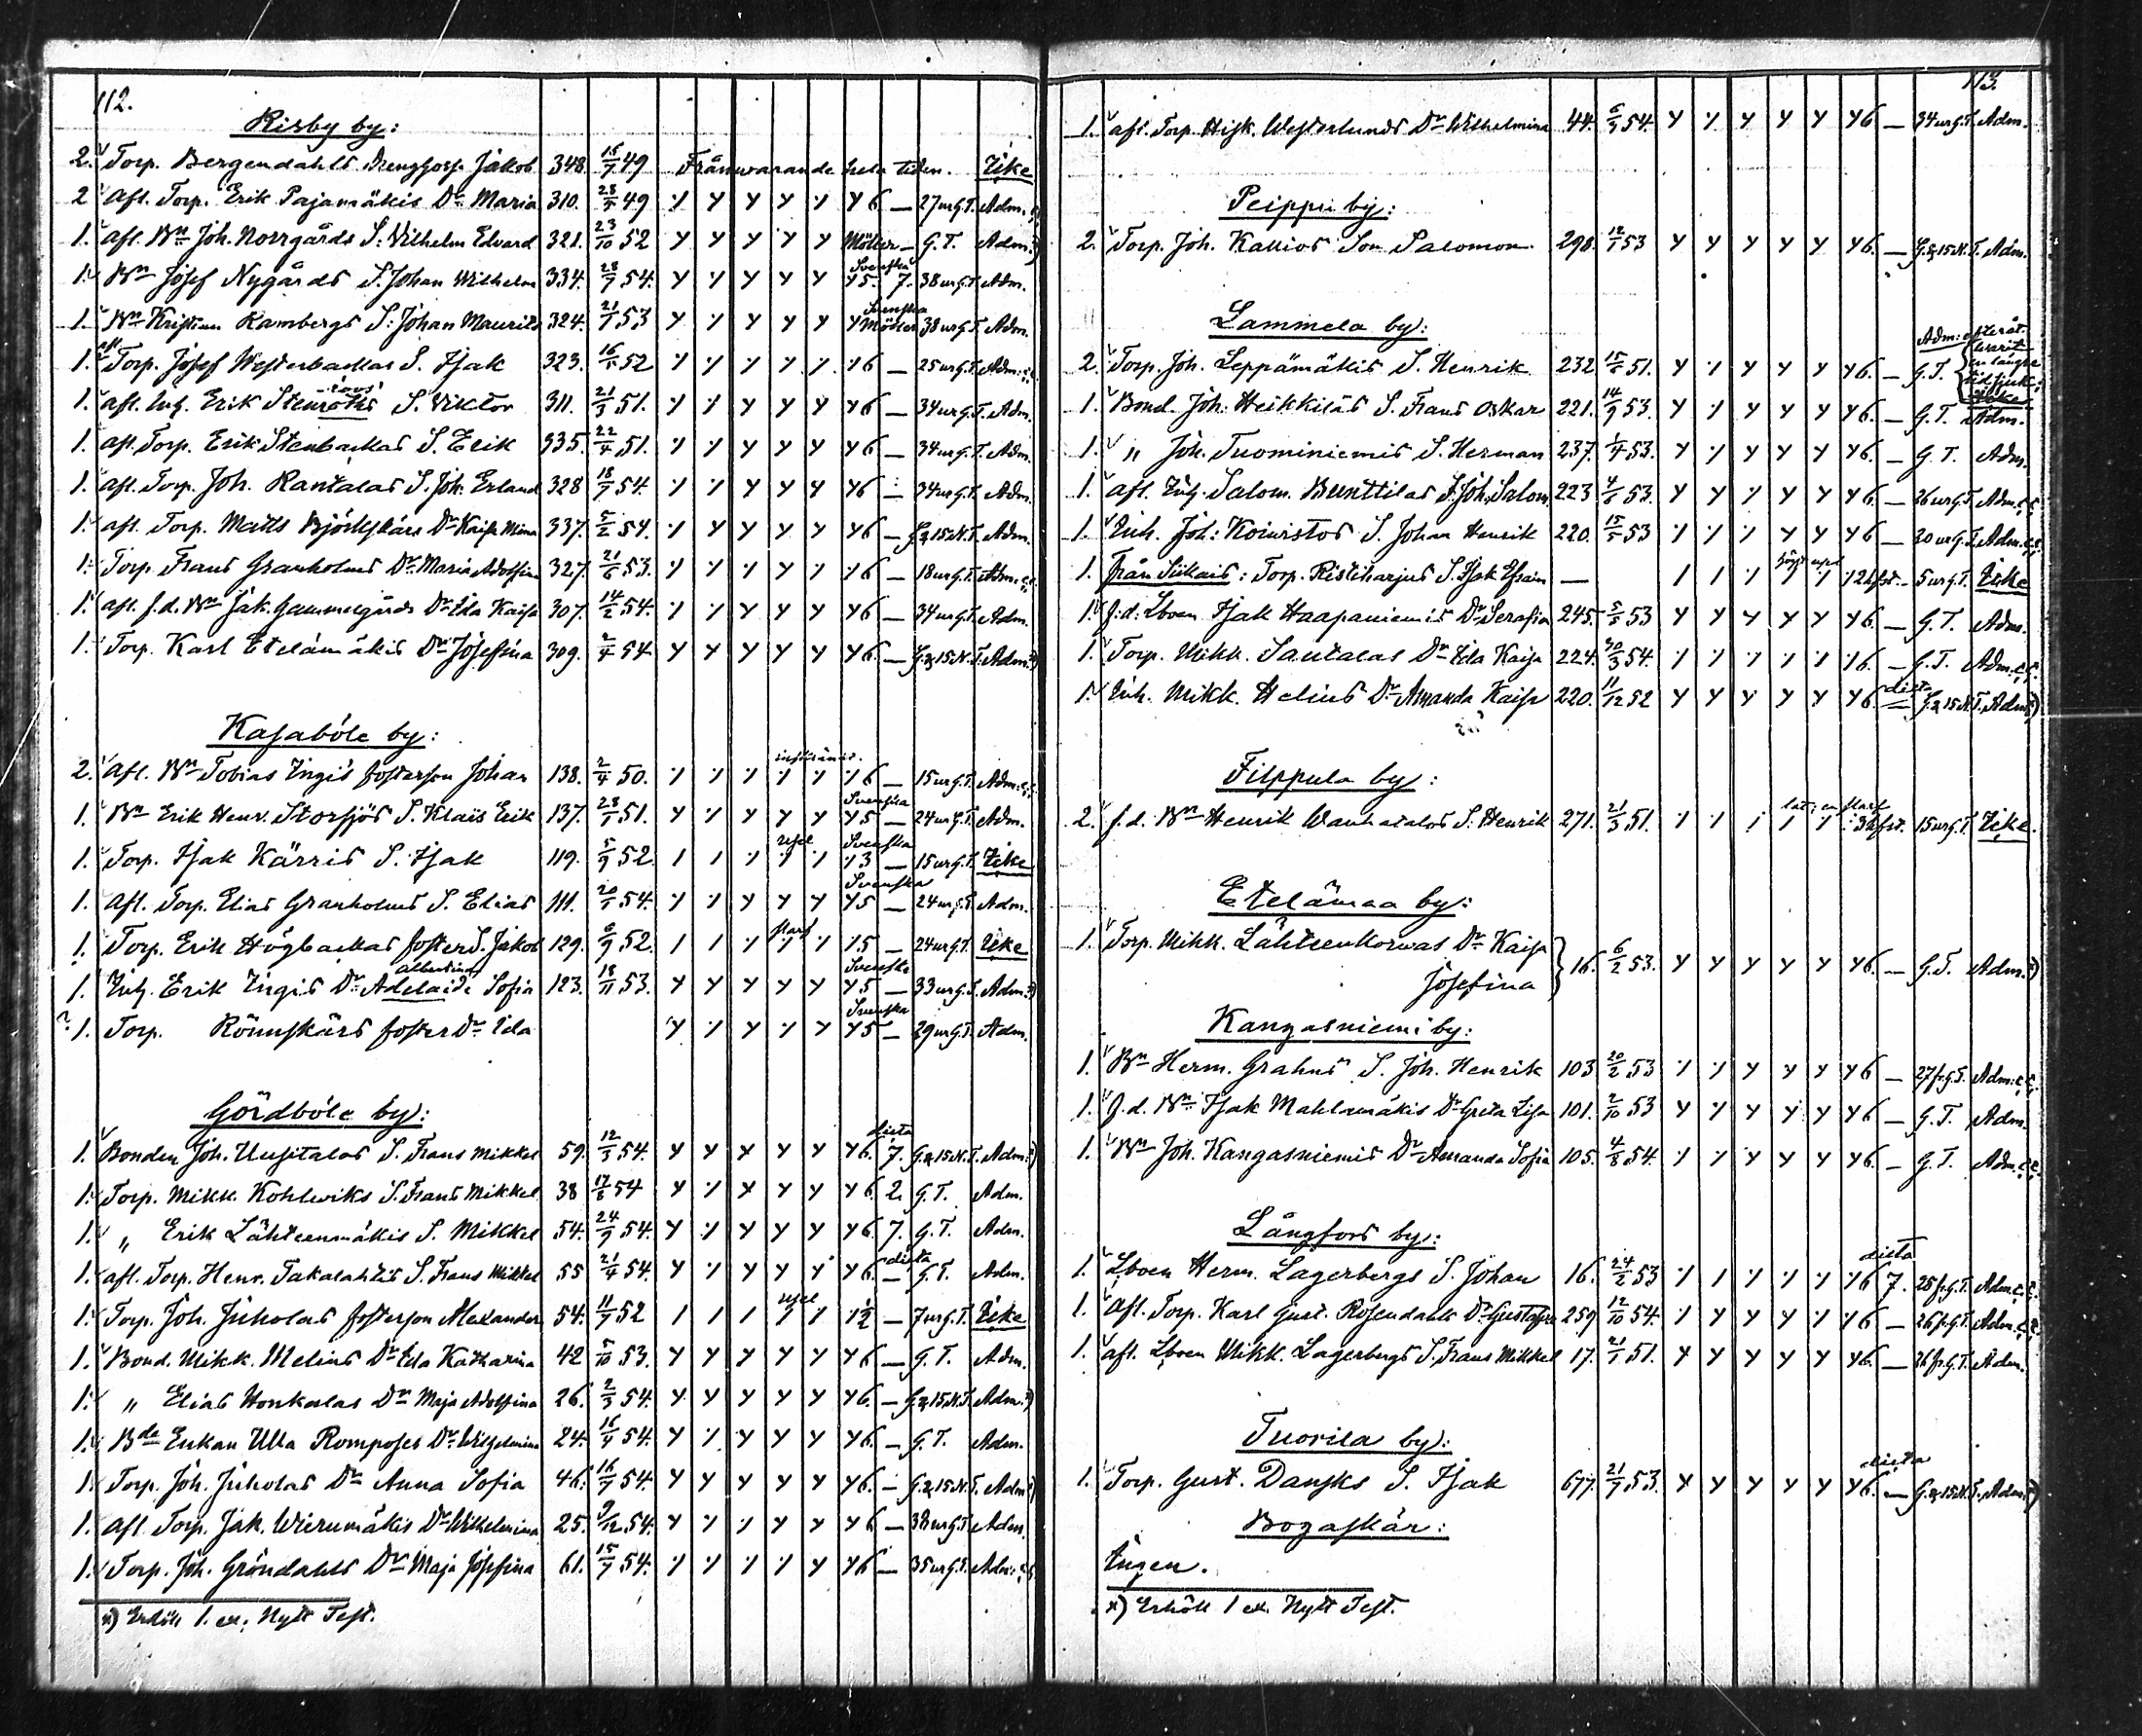 112.
Risby by:
2. Torp. Bergendahls Drengfosf. Jakob 348 15/7 49 Frånwarande hela tiden. Icke
2 Afl. Torp. Erik Pajamäkis Dr Maria 310. 28/5 49 6 — 27 ur G.T. Adm.
1. Afl. Bn Joh. Norrgårds S. Wilhelm Edvard 321. 23/10 52 Möller — G.T. Adm.
1. Bn Josef Nygårds S. Johan Wilhelm 334. 28/9 54. Svenska 5. 7. 38 ur G.T. Adm.
1. Bn Kristian Rambergs S. Johan Maurits 324. 21/7 53 Svenska Möller 38 ur G.T. Adm.
1. afl Torp. Josef Westerbackas S. Isak 323. 16/5 52 6 — 25 ur G.T. Adm.
1. afl. Inh. Erik Stenroths S. Viktor 311. 21/3 51. 6 — 34 ur G.T. Adm.
1. afl. Torp. Erik Stenbackas S. Erik 335. 22/4 51. 6 — 34 ur G.T. Adm.
1. afl. Torp. Joh. Rantalas S. Joh. Erland 328 18/7 54. 6 — 34 ur G.T. Adm.
1. afl. Torp. Matts Björkskärs Dr Kaisa Mina 337. 5/2 54. 6 — G. & 15 N.T. Adm.
1. Torp. Frans Granholms Dr Maria Adolfina 327. 21/6 53. 6 — 18 ur G.T. Adm.
1. afl. f.d. Bn Jak. Gammelgårds Dr Ida Kaisa 307. 14/2 54. 6 — 34 ur G.T. Adm.
1. Torp. Karl Etelämäkis Dr Josefina 309. 2/4 54 6 — G. & 15 N.T. Adm.
Kasaböle by:
2. Afl. Bn Tobias Ingis fosterson Johan 138. 2/4 50. 6 — 15 ur G.T. Adm.
1. Bn Erik Henr. Storsjös S. Klais Erik 137. 23/1 51. Svenska 5 — 24 ur G.T. Adm.
1. Torp. Isak Kärris S. Isak 119. 5/9 52. Svenska 3 — 15 ur G.T. Icke
1. Afl. Torp. Elias Granholms S. Elias 111. 20/1 54. Svenska 5 — 24 ur G.T. Adm.
1. Torp. Erik Högbackas foster S. Jakob 129. 6/9 52. 5 — 24 ur G.T. Icke
1. Inh. Erik Ingis Dr Adelaide Albertina Sofia 123. 18/11 53. Svenska 5 — 33 ur G.T. Adm.
? 1. Torp. Rönnskärs foster Dr Ida Svenska 5 — 29 ur G.T. Adm.
Gördböle by:
1. Bonden Joh. Uusitalos S. Frans Mikkel 59. 12/3 54. 6. dicta 7. G. & 15 N.T. Adm.
1. Torp. Mikk. Kohlwiks S. Frans Mikkel 38 17/8 54 6. 2. G.T. Adm.
1. „ Erik Lähteenmäkis S. Mikkel 54. 24/9 54. 6. 7. G.T. Adm.
1. afl. Torp. Henr. Takalahtis S. Frans Mikkel 55 21/4 54. 6. dicta — G.T. Adm.
1. Torp. Joh. Juholas fosterson Alexander 54. 11/9 52 1/2 — 7 ur G.T. Icke
1. Bond. Mikk. Melins Dr Ida Katharina 42 5/10 53. 6 — G.T. Adm.
1. „ Elias Honkalas Dr Maja Adolfina 26. 2/3 54. 6. — G. & 15 N.T. Adm.
1. Bde Enkan Ulla Romposes Dr Wilhelmina 24. 16/4 54. 6. — G.T. Adm.
1. Torp. Joh. Juholas Dr Anna Sofia 46. 16/7 54. 6. — G. & 15 N.T. Adm.
1. Afl Torp. Jak. Wierumäkis Dr Wilhelmina 25. 9/12 54. 6 — 38 ur G.T. Adm.
1. Torp. Joh. Gröndahls Dr Maja Josefina 61. 15/7 54. 6 — 35 ur G.T. Adm.
x) Erhöll 1. ex. Nytt Test.
113.
1. afl. Torp. Isak. Westerlunds Dr Wilhelmina 44. 6/3 54. 6 — 34 ur G.T. Adm.
Peippu by:
2. Torp. Joh. Kallios Son Salomon 298. 12/1 53 6. — G. & 15 N.T. Adm.
Lammela by:
2. Torp. Joh. Leppämäkis S. Henrik 232 15/5 51. 6. — G.T.
1. Bond. Joh. Heikkiläs S. Frans Oskar 221. 14/9 53. 6. — G.T. Adm.
1. „ Joh. Tuominiemis S. Herman 237. 1/4 53. 6. — G.T. Adm.
1. afl. Inh. Salom. Bunttilas S. Joh. Salom. 223 4/8 53. 6 — 36 ur G.T. Adm.
1. Inh. Joh. Koiwistos S. Johan Henrik 220. 15/5 53 6 — 20 ur G.T. Adm.
1. från Siikais: Torp. Ristiharjus S. Isak Efraim — 5 ur G.T. Icke
1. f.d. Lboen Isak Haapaniemis Dr Serafina 245. 5/5 53 6. — G.T. Adm.
1. Torp. Mikk. Santalas Dr Ida Kaisa 224. 30/3 54. 6. — G.T. Adm.
1. Inh. Mikk. Helins Dr Amanda Kaisa 220. 11/12 52 6. dicta — G. & 15 N.T. Adm.
Filppula by:
2. f.d. Bn Henrik Wanhatalos S. Henrik 271. 21/3 51. 15 ur G.T. Icke.
Etelämaa by:
1. Torp. Mikk. Lähteenkorwas Dr Kaisa
Josefina 16. 6/2 53. 6. — G.T. Adm.
Kangasniemi by:
1. Bn Herm. Grahns S. Joh. Henrik 103 20/2 53 6 — 27 fr. G.T. Adm.
1. f.d. Bn Isak Mahlamäkis Dr Greta Lisa 101. 2/10 53 6 — G.T. Adm.
1. Bn Joh. Kangasniemis Dr Amanda Sofia 105. 4/8 54. 6. — G.T. Adm.
Långfors by:
1. Lboen Herm. Lagerbergs S. Johan 16. 24/2 53 6 dicta 7. 25 fr. G.T. Adm.
1. Afl. Torp. Karl Gust. Rosendahls Dr Gustafva 259 12/10 54. 6 — 26 fr. G.T. Adm.
1. afl. Lboen Mikk. Lagerbergs S. Frans Mikkel 17. 21/1 51. 6. — 26 fr. G.T. Adm.
Tuorila by:
1. Torp. Gust. Dansks S. Isak 677. 21/7 53. 6. dicta — G. & 15 N.T. Adm.
Bogaskär:
Ingen.
x) Erhöll 1 ex. Nytt Test.